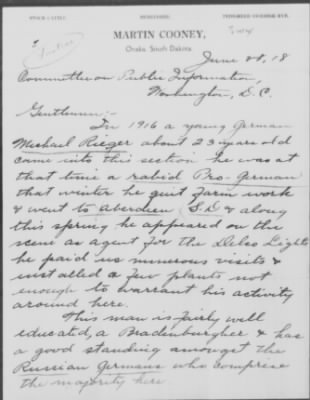 MARTIN COONEY,
Onaka, South Dakota
June 28, 18
Committee on Public Information,
Washington, D.C.
Gentlemen:-
In 1916 a young German
Michael Rieger about 23 years old
came into this section he was at
that time a rabid Pro-German
that winter he quit farm work
& went to Aberdeen (S.D & along
this spring he appeared on the
scene as agent for the Delco Lights
he paid us numerous visits &
installed a few plants not
enough to warrant his activity
around here.
This man is fairly well
educated, a Bradenburgher & has
a good standing amongst the
Russian Germans who comprise
the majority here